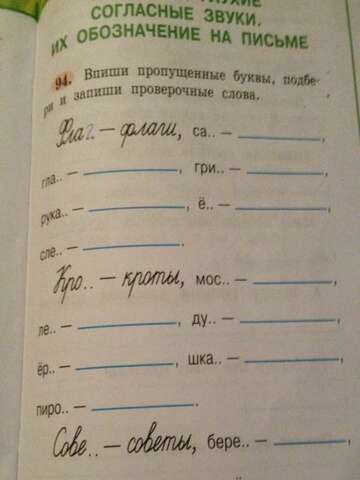 ГЛУХИЕ
СОГЛАСНЫЕ ЗВУКИ.
ИХ ОБОЗНАЧЕНИЕ НА ПИСЬМЕ
94. Впиши пропущенные буквы, подбе-
ри и запиши проверочные слова.
Флаг. – флаги, са.. – ,
гла.. – , гри.. – ,
рука.. – , ё.. – ,
сле.. – .
Кро.. – кроты, мос.. – ,
ле.. – , ду.. – ,
ёр.. – , шка.. – ,
пиро.. – .
Сове.. – советы, бере.. – ,